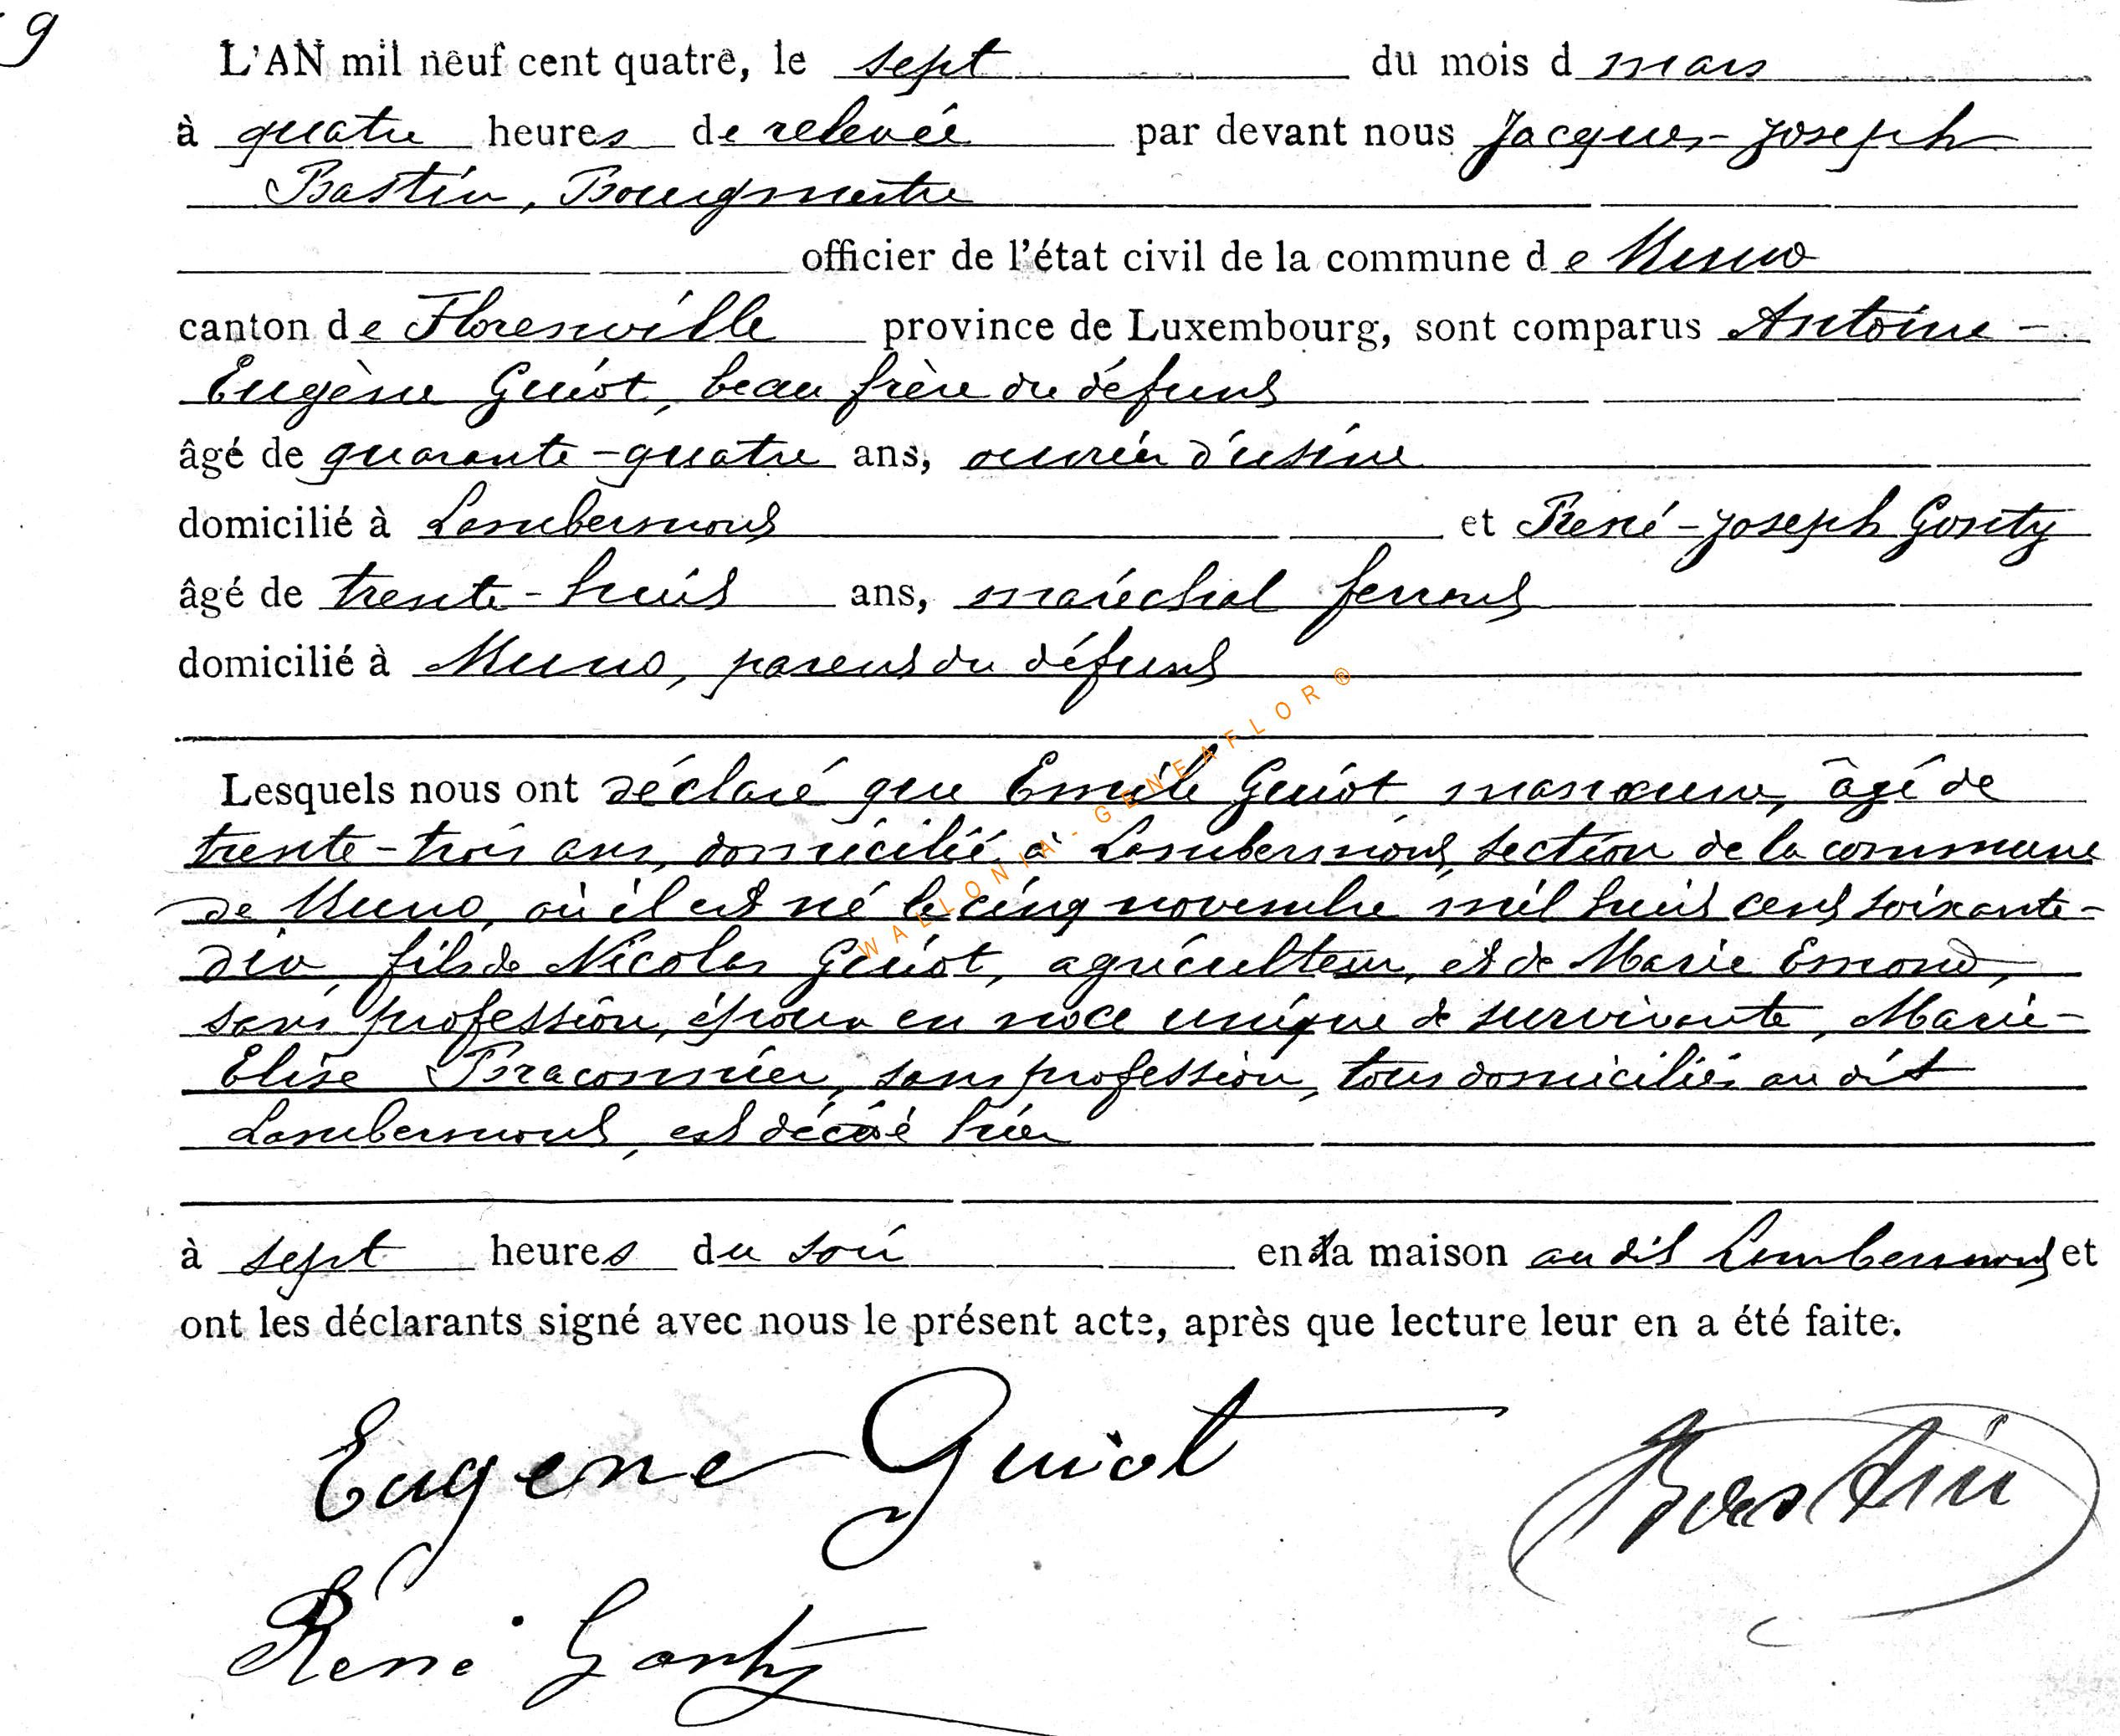 9
L'AN mil neuf cent quatre, le sept du mois d mars
à quatre heures de relevée par devant nous Jacques-Joseph
Bastin, Bourgmestre
officier de l'état civil de la commune de Muno
canton de Florenville province de Luxembourg, sont comparus Antoine-
Eugène Guiot, beau frère du défunt
âgé de quarante-quatre ans, ouvrier d'usine
domicilié à Lambermont et René-Joseph Gonty
âgé de trente-huit ans, maréchal ferrant
domicilié à Muno, parent du défunt
Lesquels nous ont déclaré que Emile Guiot manœuvre, âgé de
trente-trois ans, domicilié à Lambermont, section de la commune
de Muno, où il est né le cinq novembre mil huit cent soixante-
dix, fils de Nicolas Guiot, agriculteur, et de Marie Emond,
sans profession, époux en noce unique de survivante, Marie-
Elise Braconnier, sans profession, tous domiciliés au dit
Lambermont, est décédé hier
à sept heures du soir en sa maison au dit Lambermont et
ont les déclarants signé avec nous le présent acte, après que lecture leur en a été faite.
Eugene Guiot
Bastin
René Gonty
WALLONIA-GENEAFLOR ®